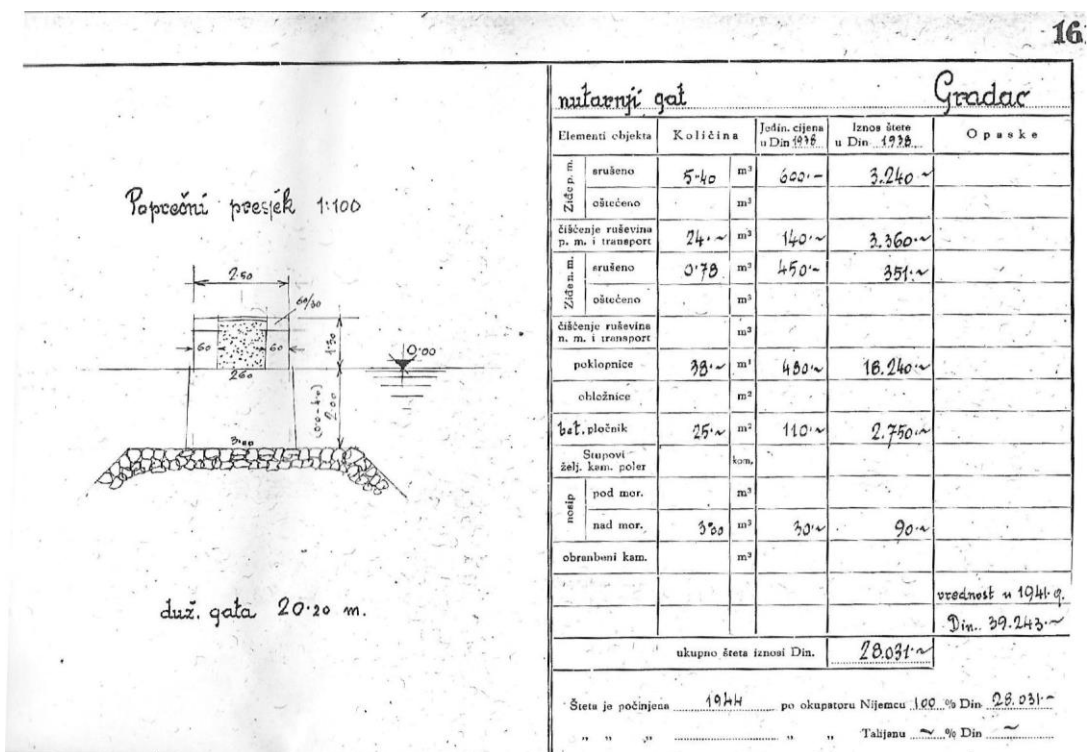 16
Poprečni presjek 1:100
2.50
60/30
60
60
1.30
0.00
2.60
(0.0-4.0)
2.00
3.00
duž. gata 20.20 m.
nutarnji gat Gradac
Elementi objekta Količina Jedin. cijena u Din 1938 Iznos štete u Din 1938 Opaske
Zide p. m. srušeno 5.40 m³ 600.- 3.240 ~
oštećeno m³
čišćenje ruševina p. m. i transport 24.~ m³ 140.~ 3.360.~
Zide n. m. srušeno 0.78 m³ 450.- 351.~
oštećeno m³
čišćenje ruševina n. m. i transport m³
poklopnice 38.~ m¹ 480.~ 18.240.~
obložnice m²
bet. pločnik 25.~ m² 110.~ 2.750.~
Stupovi želj. kam. poler kom.
nosip pod mor. m³
nad mor. 3.00 m³ 30.~ 90.~
obranbeni kam. m³
vrednost u 1941.g.
Din. 39.243.~
ukupno šteta iznosi Din. 28.031.~
Šteta je počinjena 1944 po okupatoru Nijemcu 100 % Din 28.031.-
" " " " " Talijanu ~ % Din ~